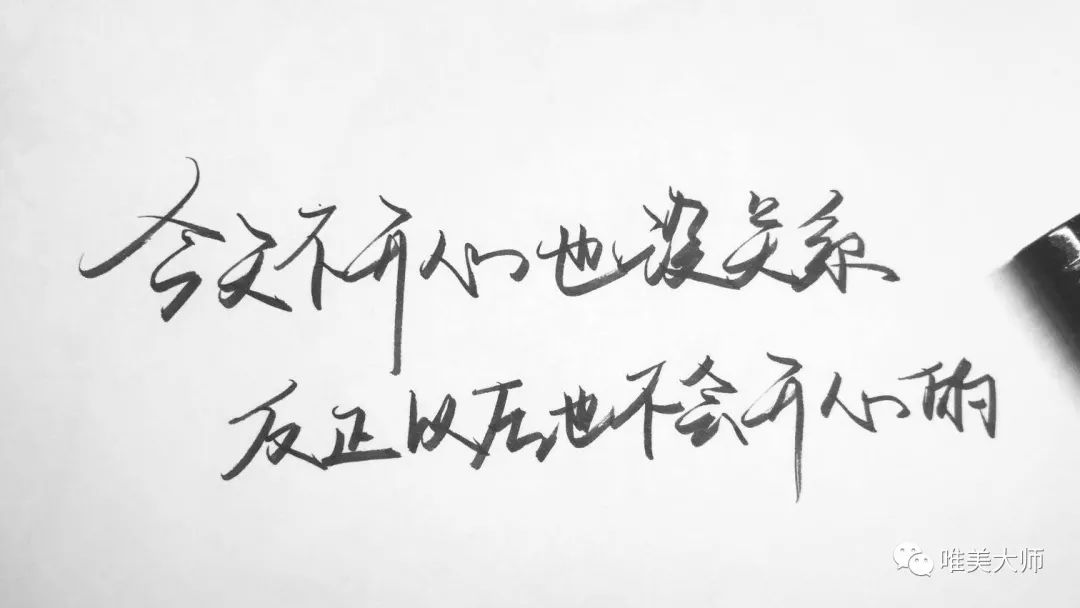 今天不开心也没关系
反正以后也不会开心的
唯美大师